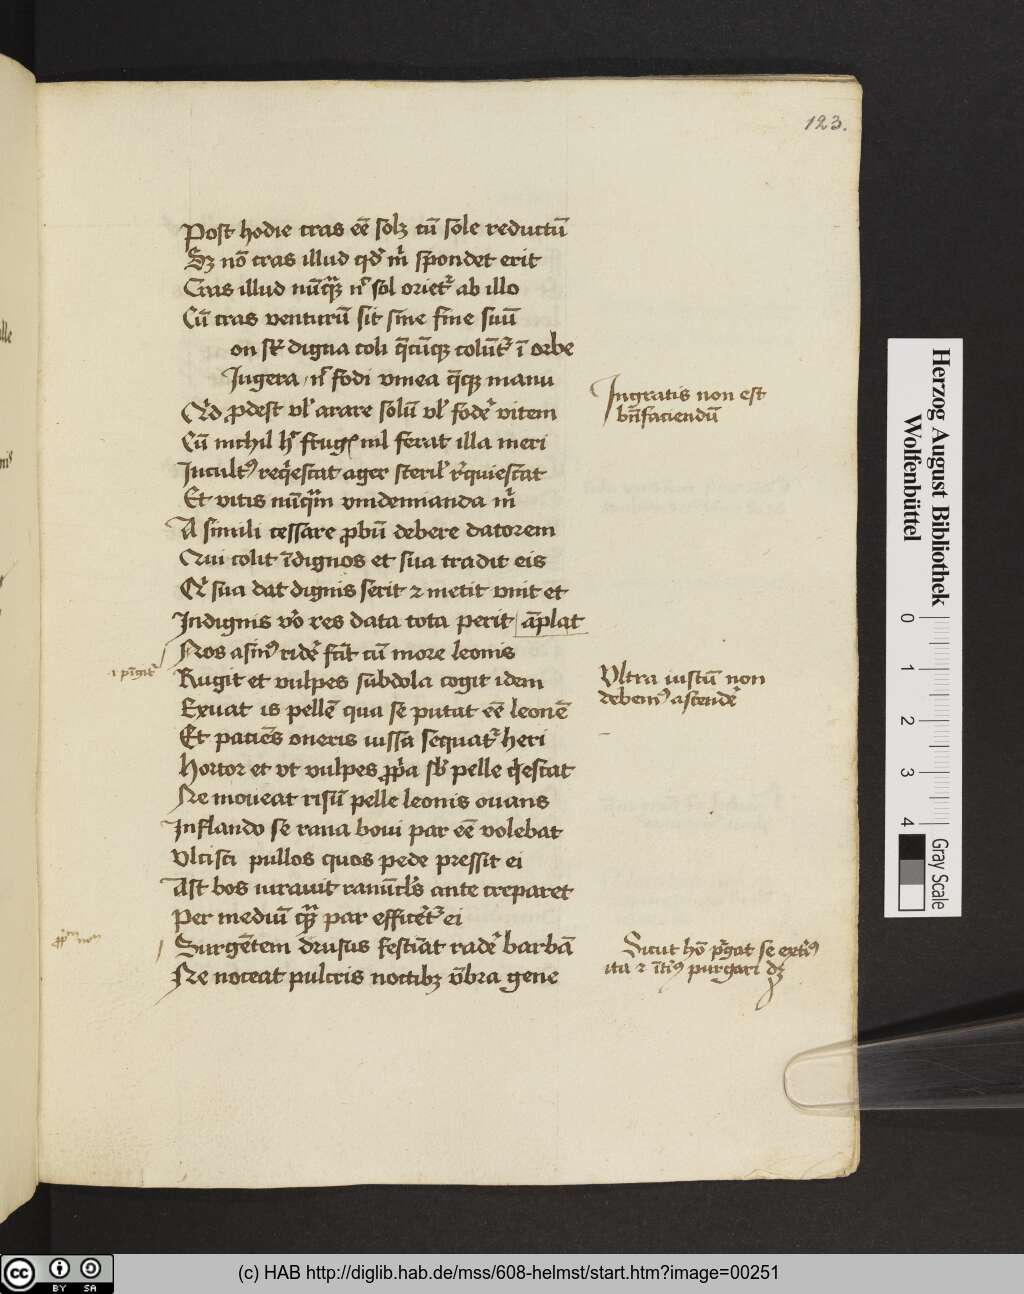 123.
Post hodie cras eē solꝫ cū sole reductū
Sꝫ nō cras illud qd' m̓ spondet erit
Cras illud nūq̄ꝫ n̓ sol oriet᷑ ab illo
Cū cras venturū sit sine fine suū
on st̄ digna coli q̄cūqꝫ colūt᷑ ī orbe
Iugera n̓ fodi vinea q̄qꝫ manu
Qid ꝓdest vl̓ arare solū vl̓ foder̓ vitem
Cū nichil h̓ frug nil ferat illa meri
Incultꝰ reqͥescat ager steril̓ reͥquiescat
Et vitis nūq̄m vindemianda m̓
A simili cessare ꝓbū debere datorem
Qui colit īdignos et sua tradit eis
Qͥ sua dat dignis serit ⁊ metit vnit et
Indignis vͦo res data tota perit | āplat
Nos asinꝰ rider̓ facit cū more leonis
Rugit et vulpes subdola cogit idem
Exuat is pellē qua se putat eē leonē
Et paciēs oneris iussa sequat᷑ heri
Hortor et vt vulpes ꝓpͥa sb̓ pelle qͥescat
Ne moueat risū pelle leonis ouans
Inflando se rana boui par eē volebat
Vlcisci pullos quos pede pressit ei
Ast bos iurauit ranūcl̓s ante creparet
Per mediū qꝫ par efficēt᷑ ei
Surgētem drusus festiāt rader̓ barbā
Ne noceat pulcris noctibꝫ vm̄bra gene
Ingratis non est
bn̄faciendū
Vltra iustū non
debemꝰ ascender̓
Sicut hō pͥgat se extiꝰ
ita ⁊ ītiꝰ purgari dꝫ
Herzog August Bibliothek
Wolfenbüttel
0 1 2 3 4
Gray Scale
cc BY SA
(c) HAB http://diglib.hab.de/mss/608-helmst/start.htm?image=00251